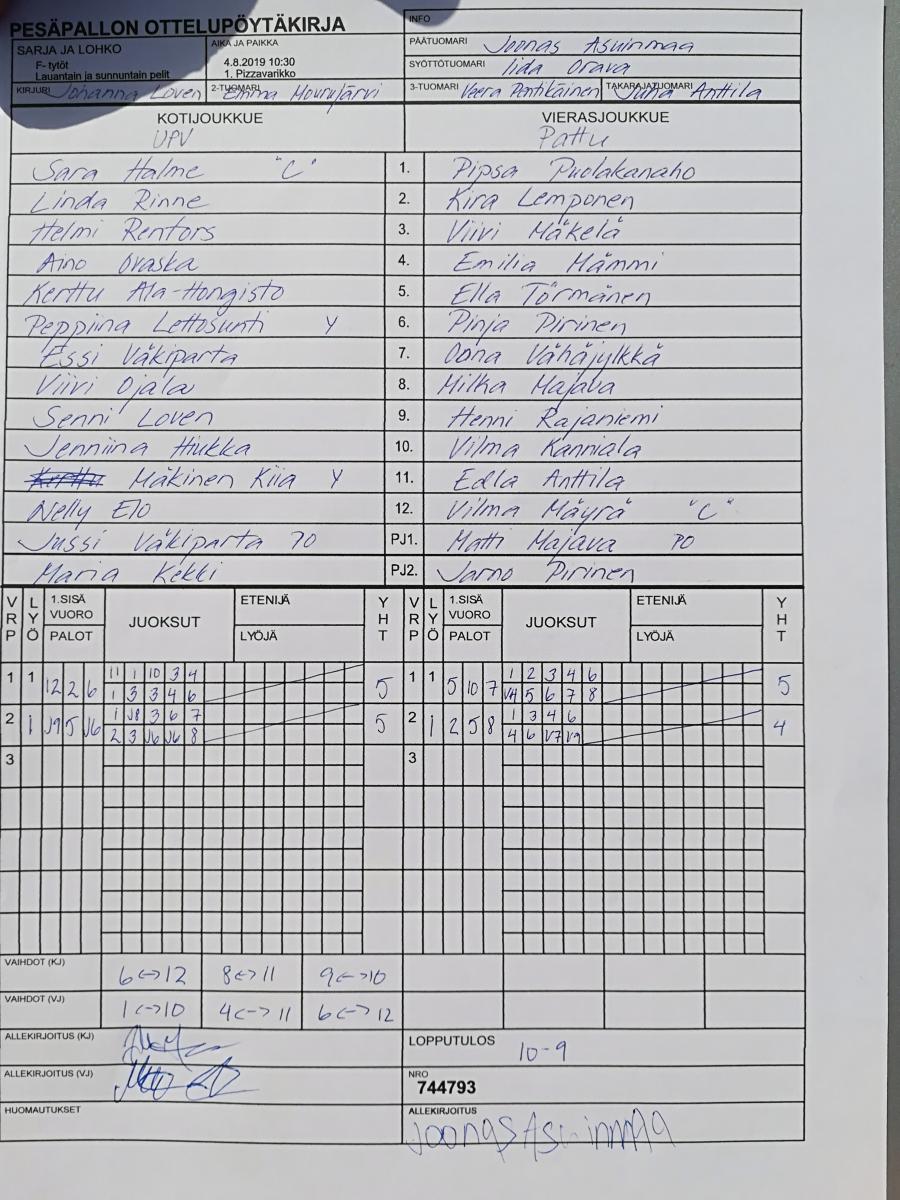 PESÄPALLON OTTELUPÖYTÄKIRJA
INFO
SARJA JA LOHKO
F- tytöt
Lauantain ja sunnuntain pelit
AIKA JA PAIKKA
4.8.2019 10:30
1. Pizzavarikko
PÄÄTUOMARI Joonas Asuinmaa
SYÖTTÖTUOMARI Iida Orava
KIRJURI Johanna Loven 2-TUOMARI Emma Mourujärvi 3-TUOMARI Veera Pentikäinen TAKARAJATUOMARI Juha Anttila
KOTIJOUKKUE VIERASJOUKKUE
UPV Pattu
Sara Halme "C" 1. Pipsa Puolakanaho
Linda Rinne 2. Kira Lemponen
Helmi Rentors 3. Viivi Mäkelä
Aino Oraska 4. Emilia Mämmi
Kerttu Ala-Hongisto 5. Ella Törmänen
Peppiina Lettosunti Y 6. Pinja Pirinen
Essi Väkiparta 7. Oona Vähäjylkkä
Viivi Ojala 8. Milka Majava
Senni Loven 9. Henni Rajaniemi
Jenniina Hiukka 10. Vilma Kanniala
Mäkinen Kiia Y 11. Edla Anttila
Nelly Elo 12. Vilma Mäyrä "C"
Jussi Väkiparta PO PJ1. Matti Majava PO
Maria Kekki PJ2. Jarno Pirinen
VRP LYÖ 1.SISÄ VUORO PALOT JUOKSUT ETENIJÄ LYÖJÄ YHT VRP LYÖ 1.SISÄ VUORO PALOT JUOKSUT ETENIJÄ LYÖJÄ YHT
1 1 12 2 6 11 1 10 3 4 5 1 1 5 10 7 1 2 3 4 6 5
1 3 3 4 6 V4 5 6 7 8
2 1 J9 5 J6 1 J8 3 6 7 5 2 1 2 5 8 1 3 4 6 4
2 3 J6 J6 8 4 6 V7 V9
3 3
VAIHDOT (KJ) 6<->12 8<->11 9<->10
VAIHDOT (VJ) 1<->10 4<->11 6<->12
ALLEKIRJOITUS (KJ)
LOPPUTULOS 10-9
ALLEKIRJOITUS (VJ)
NRO
744793
HUOMAUTUKSET
ALLEKIRJOITUS
Joonas Asuinmaa